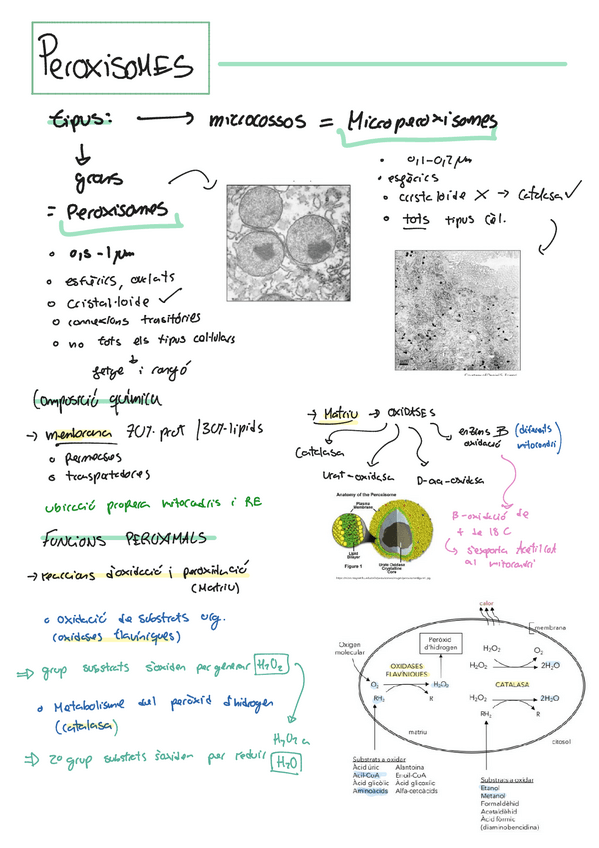 PEROXISOMES
tipus: → microcossos = Microperoxisomes
grans
= Peroxisomes
• 0,1-0,2 µm
• esfèrics
• cristaloide X → Catalasa ✓
• tots tipus cèl.
• 0,5-1 µm
• esfèrics, ovalats
• Cristal·loide ✓
• connexions transitòries
• no tots els tipus cel·lulars
fetge i ronyó
Composició química
→ membrana 70% prot / 30% lípids
• Permeases
• transportadores
ubicació propera mitocondris i RE
→ Matriu → OXIDASES
Catalasa
Urat-oxidasa
D-aa-oxidasa
enzims B oxidació (diferents mitocondri)
B-oxidació de
+ de 18 C
↳ s'exporta Acetil CoA
al mitocondri
Anatomy of the Peroxisome
Plasma
Membrane
Lipid
Bilayer
Urate Oxidase
Crystalline
Core
Figure 1
FUNCIONS PEROXIMALS
→ reaccions d'oxidació i peroxidació
(Matriu)
• Oxidació de substrats org.
(oxidases flavíniques)
⇒ grup substrats s'oxiden per generar H₂O₂
• Metabolisme del peròxid d'hidrogen
(catalasa)
H₂O₂ a
⇒ 2o grup substrats s'oxiden per reduir H₂O
calor
membrana
Oxigen
molecular
Peròxid
d'hidrogen
OXIDASES
FLAVÍNIQUES
O₂
H₂O₂
RH₂
R
matriu
H₂O₂
O₂
H₂O₂
2H₂O
CATALASA
H₂O₂
2H₂O
RH₂
R
citosol
Substrats a oxidar
Àcid úric Alantoina
Acil-CoA Enoil-CoA
Àcid glicòlic Àcid glioxílic
Aminoàcids Alfa-cetoàcids
Substrats a oxidar
Etanol
Metanol
Formaldèhid
Acetaldèhid
Àcid fòrmic
(diaminobencidina)